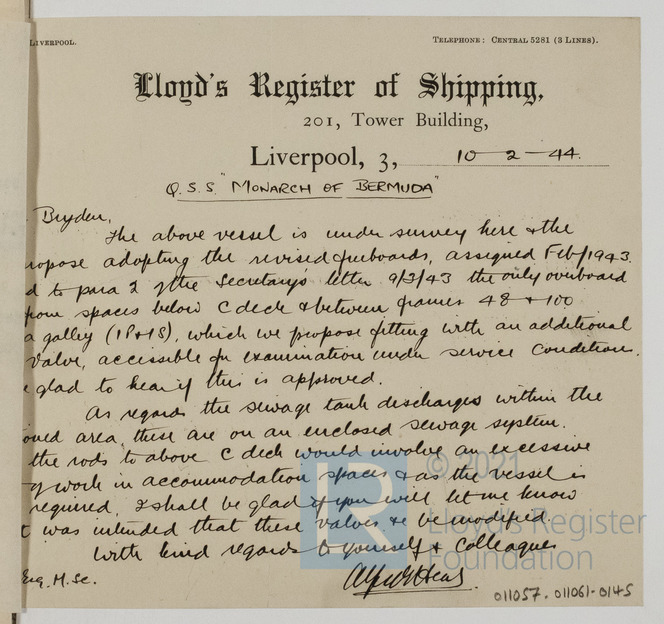 LIVERPOOL.
TELEPHONE: CENTRAL 5281 (3 LINES).
Lloyd's Register of Shipping,
201, Tower Building,
Liverpool, 3, 10-2-44.
Q.S.S. "MONARCH OF BERMUDA"
Bryden,
The above vessel is under survey here & the
ropose adopting the revised freeboards, assigned Feb/1943.
d to para 2 of the Secretary's letter 9/3/43 the only overboard
from spaces below C deck & between frames 48 & 100
a galley (1P&1S), which we propose fitting with an additional
valve, accessible for examination under service conditions.
e glad to hear if this is approved.
As regards the sewage tank discharges within the
area, these are on an enclosed sewage system.
the rods to above C deck would involve an excessive
of work in accommodation spaces & as the vessel is
required, I shall be glad if you will let me know
t was intended that these valves be modified
With kind regards to yourself & Colleagues
Esq. M.Sc.
© 2021
LR
Lloyd's Register
Foundation
011057.011061-0145